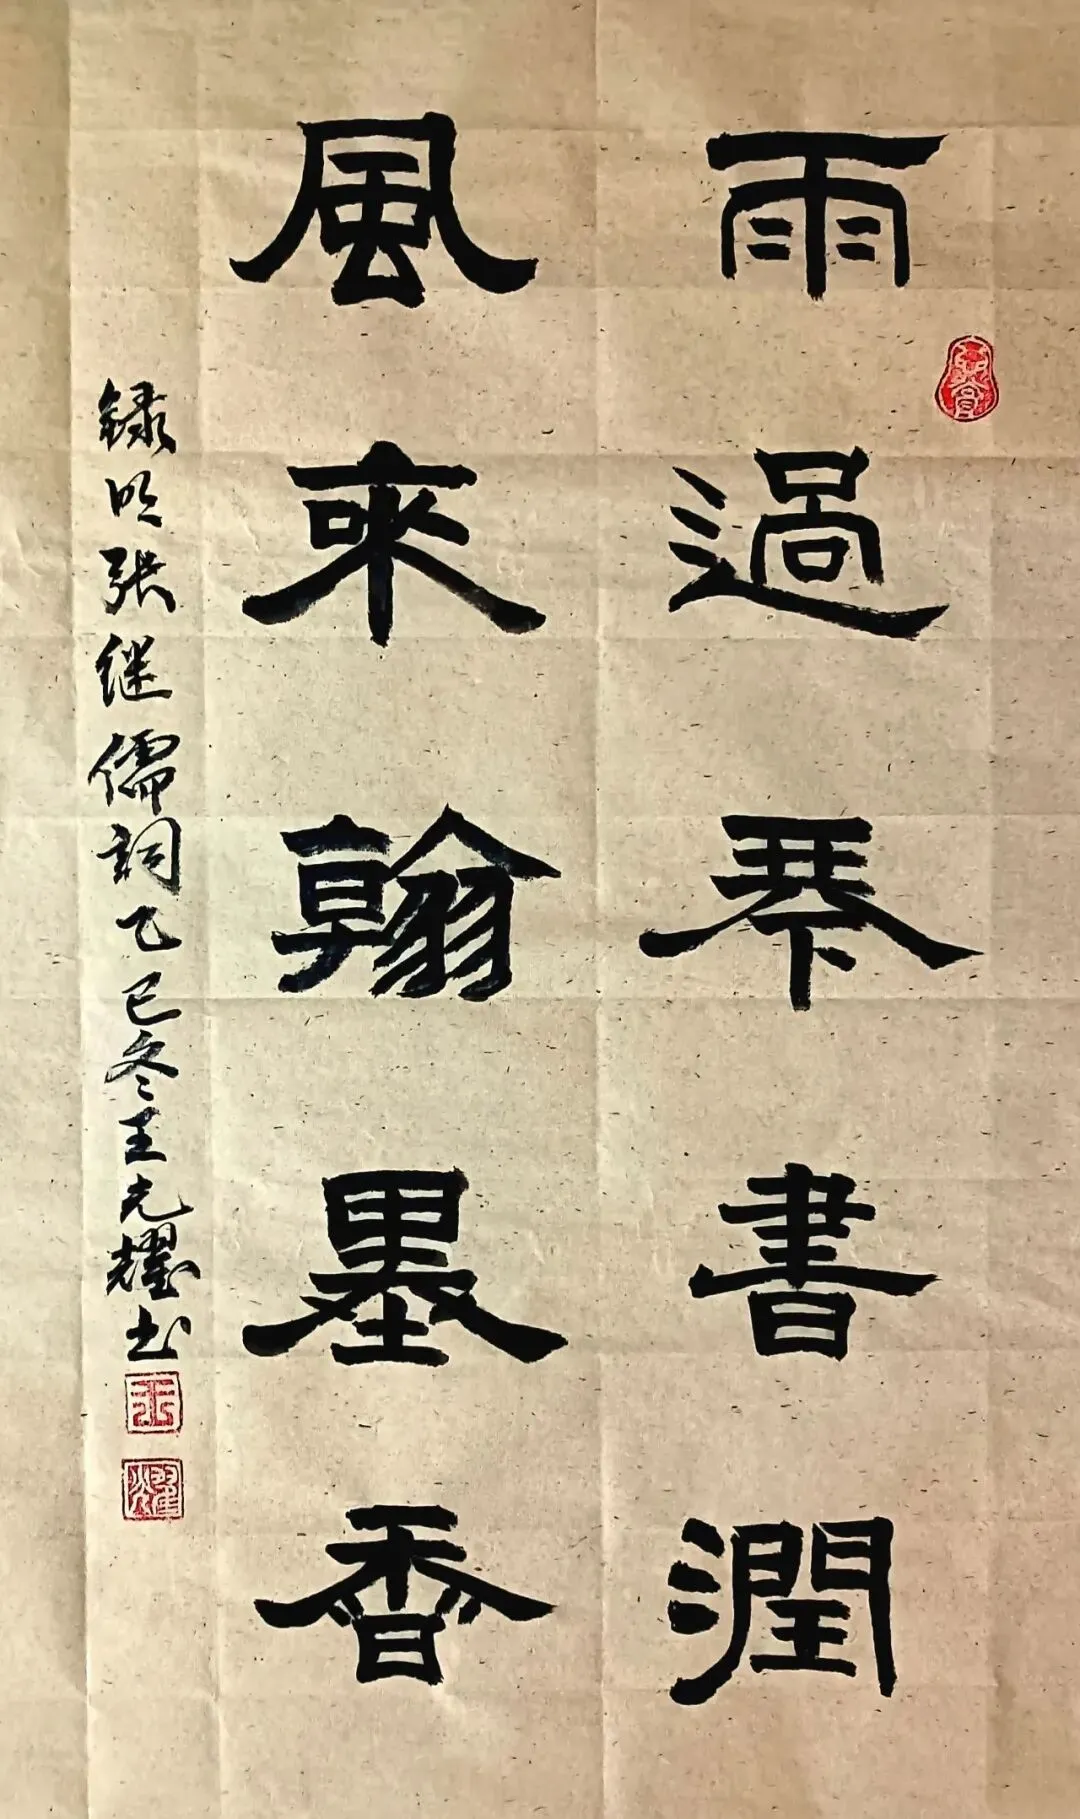 雨過琴書潤
風來翰墨香
録明张继儒詞乙巳冬王光耀书